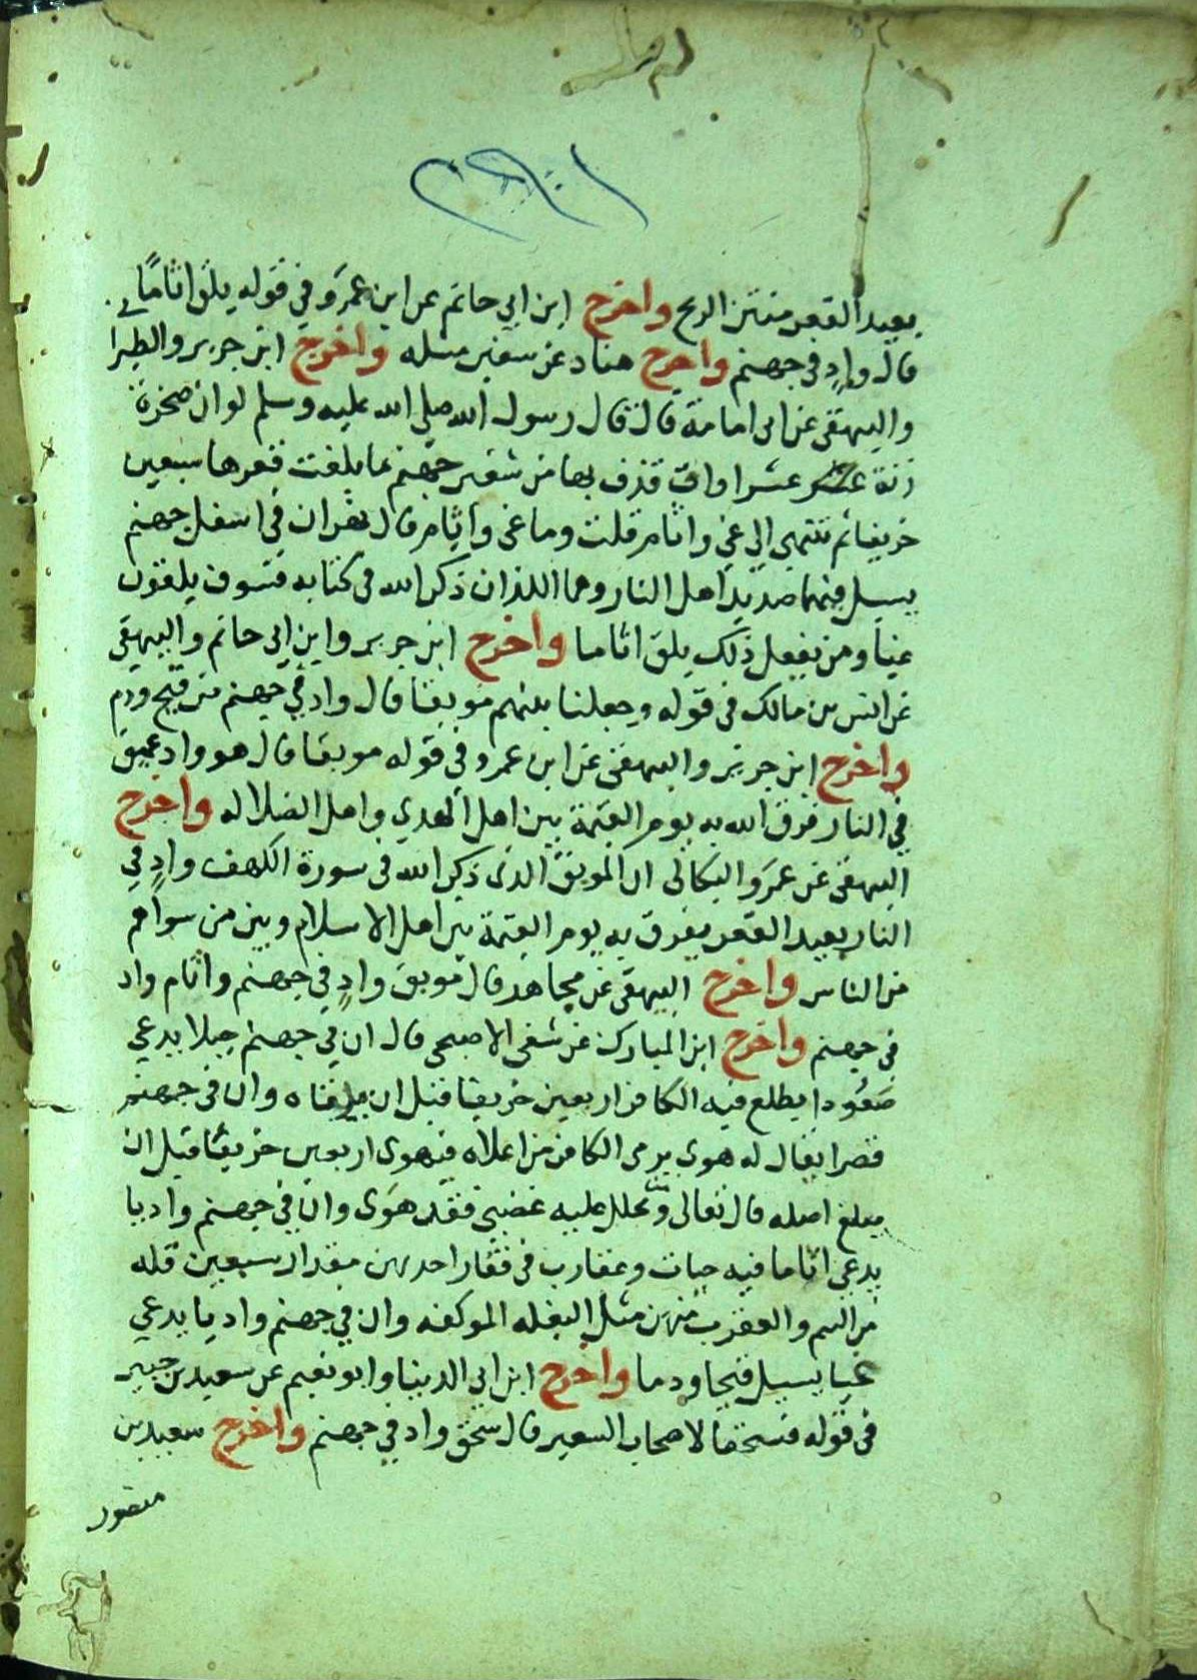 بعيد القعر منتن الريح واخرج ابن ابي حاتم عن ابن عمرو في قوله يلق اثاما
قال واد في جهنم واخرج هناد عن سفين مثله واخرج ابن جرير والطبرا
والبيهقي عن ابي امامة قال قال رسول الله صلي الله عليه وسلم لو ان صخرة
زنة عشر عشراوات قذف بها من شفير جهنم ما بلغت قعرها سبعين
خريفا ثم تنتهي الي غي واثام قلت وما غي واثام قال نهران في اسفل جهنم
يسيل فيهما صديد اهل النار وهما اللذان ذكر الله في كتابه فسوف يلقون
غيا ومن يفعل ذلك يلق اثاما واخرج ابن جرير وابن ابي حاتم والبيهقي
عن انس بن مالك في قوله وجعلنا بينهم موبقا قال واد في جهنم من قيح ودم
واخرج ابن جرير والبيهقي عن ابن عمرو في قوله موبقا قال هو واد عميق
في النار فرق الله به يوم القيمة بين اهل الهدي واهل الضلاله واخرج
البيهقي عن عمرو البكالي ان الموبق الذي ذكر الله في سورة الكهف واد في
النار بعيد القعر يفرق به يوم القيمة بين اهل الاسلام وبين من سواهم
من الناس واخرج البيهقي عن مجاهد قال موبق واد في جهنم واثام واد
في جهنم واخرج ابن المبارك عن شفي الاصبحي قال ان في جهنم جبلا يدعي
صعودا يطلع فيه الكافر اربعين خريفا قبل ان يرقاه وان في جهنم
قصرا يقال له هوي يرمي الكافر من اعلاه فيهوي اربعين خريفا قبل ان
يبلغ اصله قال تعالي ومن يحلل عليه غضبي فقد هوي وان في جهنم واديا
يدعي اثاما فيه حيات وعقارب في فقار احديهن مقدار سبعين قله
من السم والعقرب منهن مثل البغله الموكفه وان في جهنم واديا يدعي
غيا يسيل قيحا ودما واخرج ابن ابي الدينا وابو نعيم عن سعيد بن جبير
في قوله فسحقا لاصحاب السعير قال سحق واد في جهنم واخرج سعيد بن
منصور